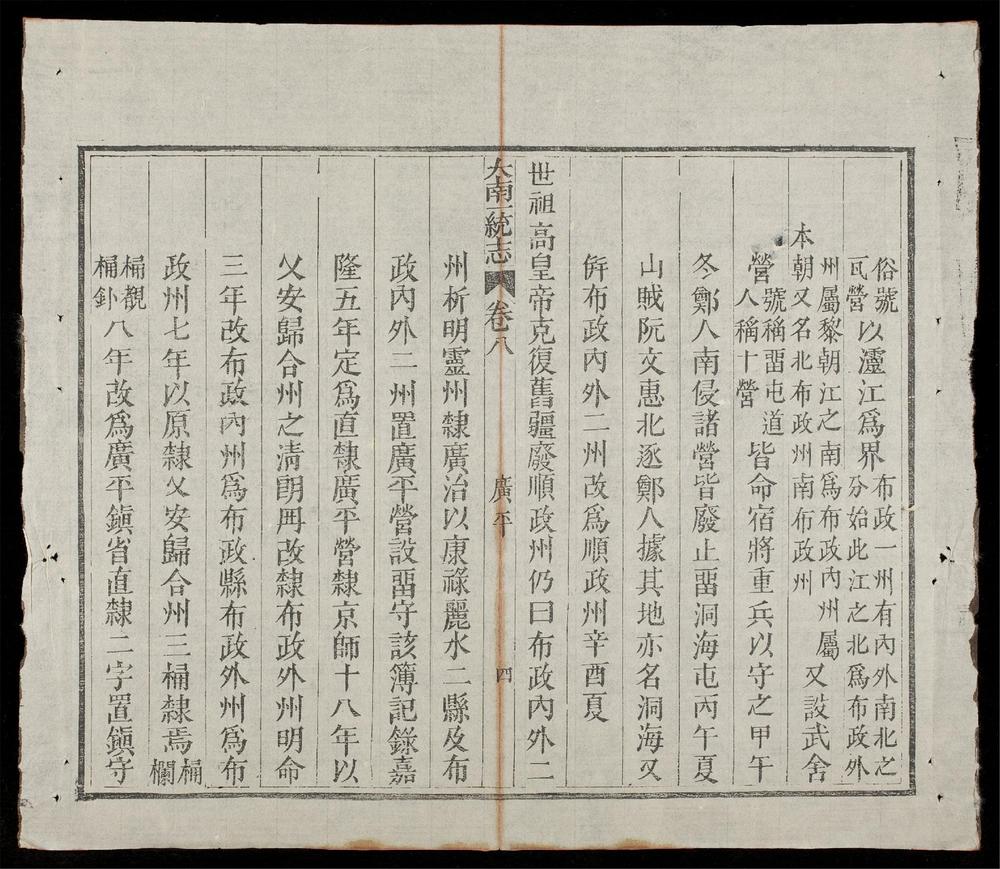 俗號
瓦營
以江爲界
布政一州有內外南北之
分始此江之北爲布政外
州屬黎朝江之南爲布政內州屬
本朝又名北布政州南布政州
又設武舍
營
號稱畱屯道
人稱十營
皆命宿將重兵以守之甲午
冬鄭人南侵諸營皆廢止畱洞海屯丙午夏
山賊阮文惠北逐鄭人據其地亦名洞海又
倂布政內外二州改爲順政州辛酉夏
世祖高皇帝克復舊疆廢順政州仍曰布政內外二
大南一統志 卷八 廣平 四
州析明靈州隸廣治以康祿麗水二縣及布
政內外二州置廣平營設畱守該簿記錄嘉
隆五年定爲直隸廣平營隸京師十八年以
乂安歸合州之淸朗冊改隸布政外州明命
三年改布政內州爲布政縣布政外州爲布
政州七年以原隸乂安歸合州三桶隸焉
桶欄
桶覩
桶釙
八年改爲廣平鎭省直隸二字置鎭守